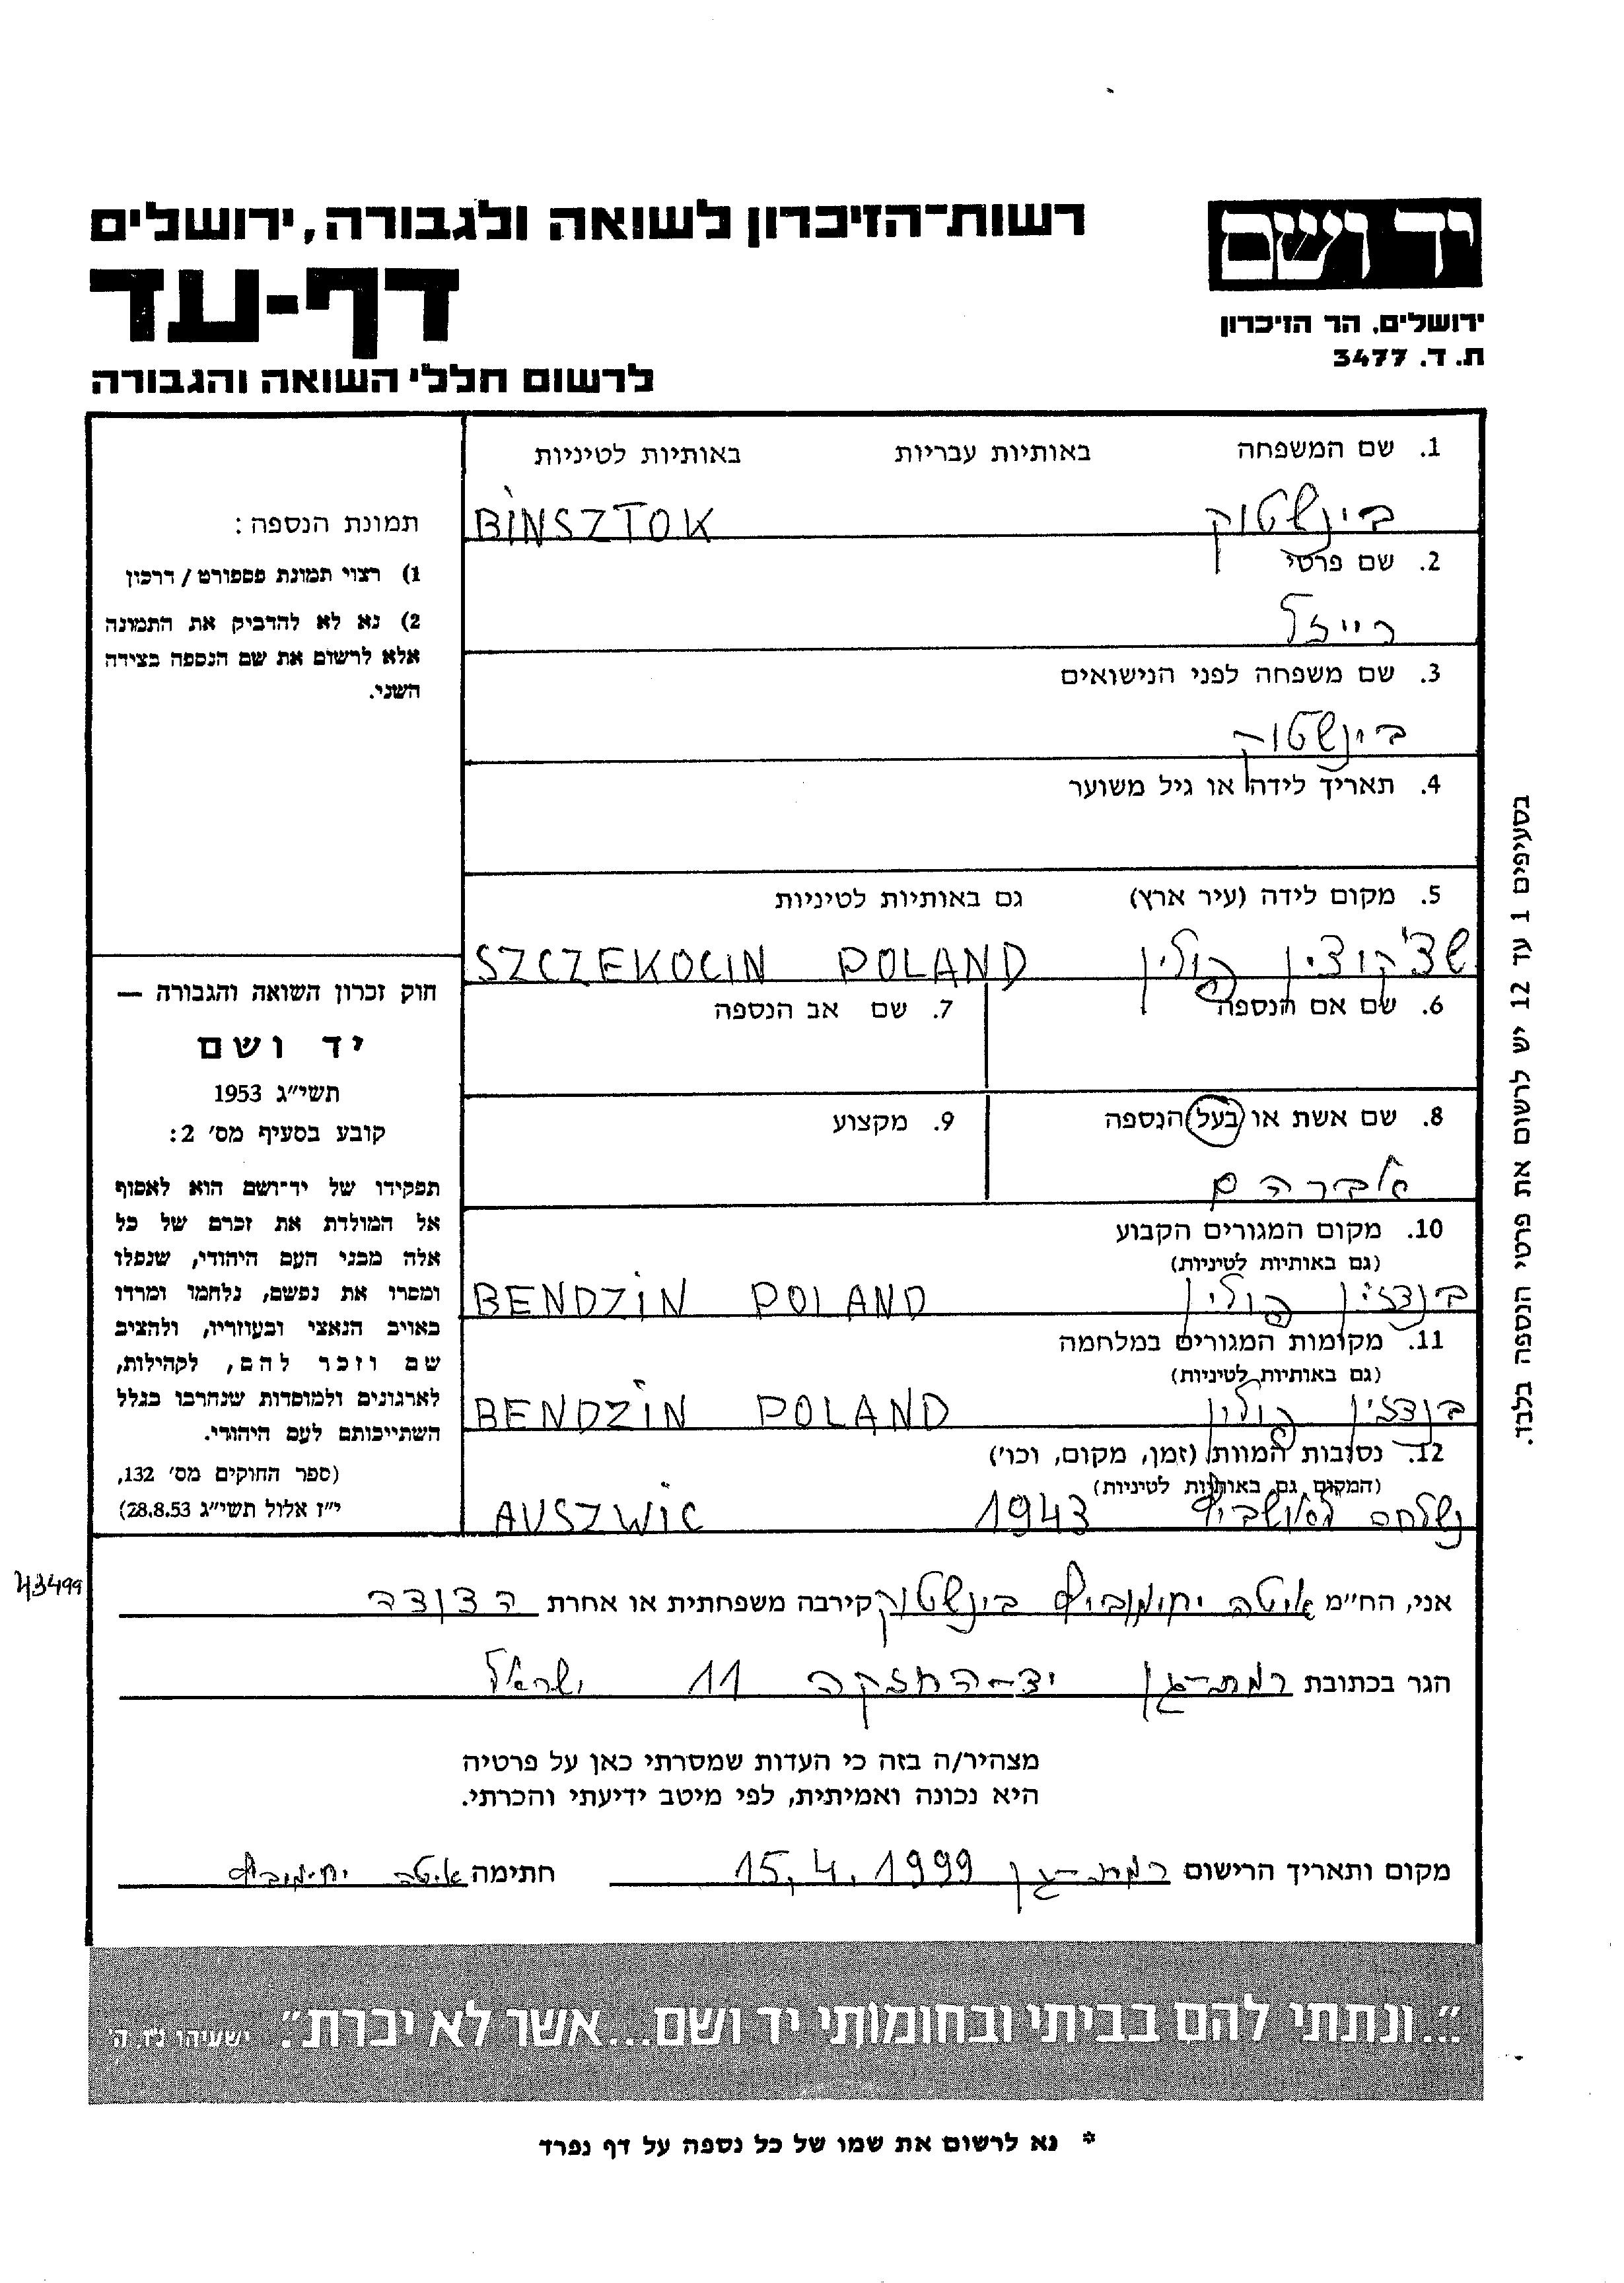 רשות-הזיכרון לשואה ולגבורה, ירושלים
דף-עד
לרשום חללי השואה והגבורה
יד ושם
ירושלים, הר הזיכרון
ת. ד. 3477
1. שם המשפחה באותיות עבריות באותיות לטיניות
בינשטוק BINSZTOK
2. שם פרטי
רייזל
3. שם משפחה לפני הנישואים
בינשטוק
4. תאריך לידה או גיל משוער
5. מקום לידה (עיר ארץ) גם באותיות לטיניות
שצ'קוצין פולין SZCZEKOCIN POLAND
6. שם אם הנספה 7. שם אב הנספה
8. שם אשת או בעל הנספה 9. מקצוע
אברהם
10. מקום המגורים הקבוע
(גם באותיות לטיניות)
בנדזין פולין BENDZIN POLAND
11. מקומות המגורים במלחמה
(גם באותיות לטיניות)
בנדזין פולין BENDZIN POLAND
12. נסובות המוות (זמן, מקום, וכו')
(המקום גם באותיות לטיניות)
נשלחה לאושביץ 1943 AUSZWIC
תמונת הנספה:
1) רצוי תמונת פספורט / דרכון
2) נא לא להדביק את התמונה
אלא לרשום את שם הנספה בצידה
השני.
חוק זכרון השואה והגבורה —
יד ושם
תשי"ג 1953
קובע בסעיף מס' 2:
תפקידו של יד-ושם הוא לאסוף
אל המולדת את זכרם של כל
אלה מבני העם היהודי, שנפלו
ומסרו את נפשם, נלחמו ומרדו
באויב הנאצי ובעוזריו, ולהציב
שם וזכר להם, לקהילות,
לארגונים ולמוסדות שנחרבו בגלל
השתייכותם לעם היהודי.
(ספר החוקים מס' 132,
י"ז אלול תשי"ג 28.8.53)
בסעיפים 1 עד 12 יש לרשום את פרטי הנספה בלבד.
43499
אני, הח"מ איטה יחימוביץ בינשטוק קירבה משפחתית או אחרת הדודה
הגר בכתובת רמת-גן יד-החזקה 11 ישראל
מצהיר/ה בזה כי העדות שמסרתי כאן על פרטיה
היא נכונה ואמיתית, לפי מיטב ידיעתי והכרתי.
מקום ותאריך הרישום רמת-גן 15.4.1999 חתימה איטה יחימוביץ
"...ונתתי להם בביתי ובחומותי יד ושם...אשר לא יכרת". ישעיהו נ"ו, ה'
* נא לרשום את שמו של כל נספה על דף נפרד